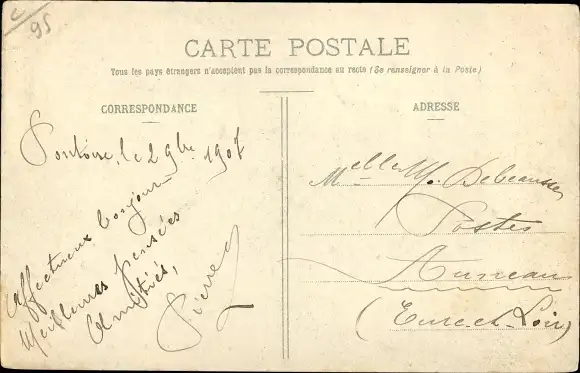 95
CARTE POSTALE
Tous les pays étrangers n'acceptent pas la correspondance au recto (Se renseigner à la Poste)
CORRESPONDANCE
Pontoise, le 2 9bre 1907
Affectueux bonjour
Meilleures pensées
Amitiés,
Pierre
ADRESSE
Melle M.
Postes
Auneau
(Eure-et-Loir)